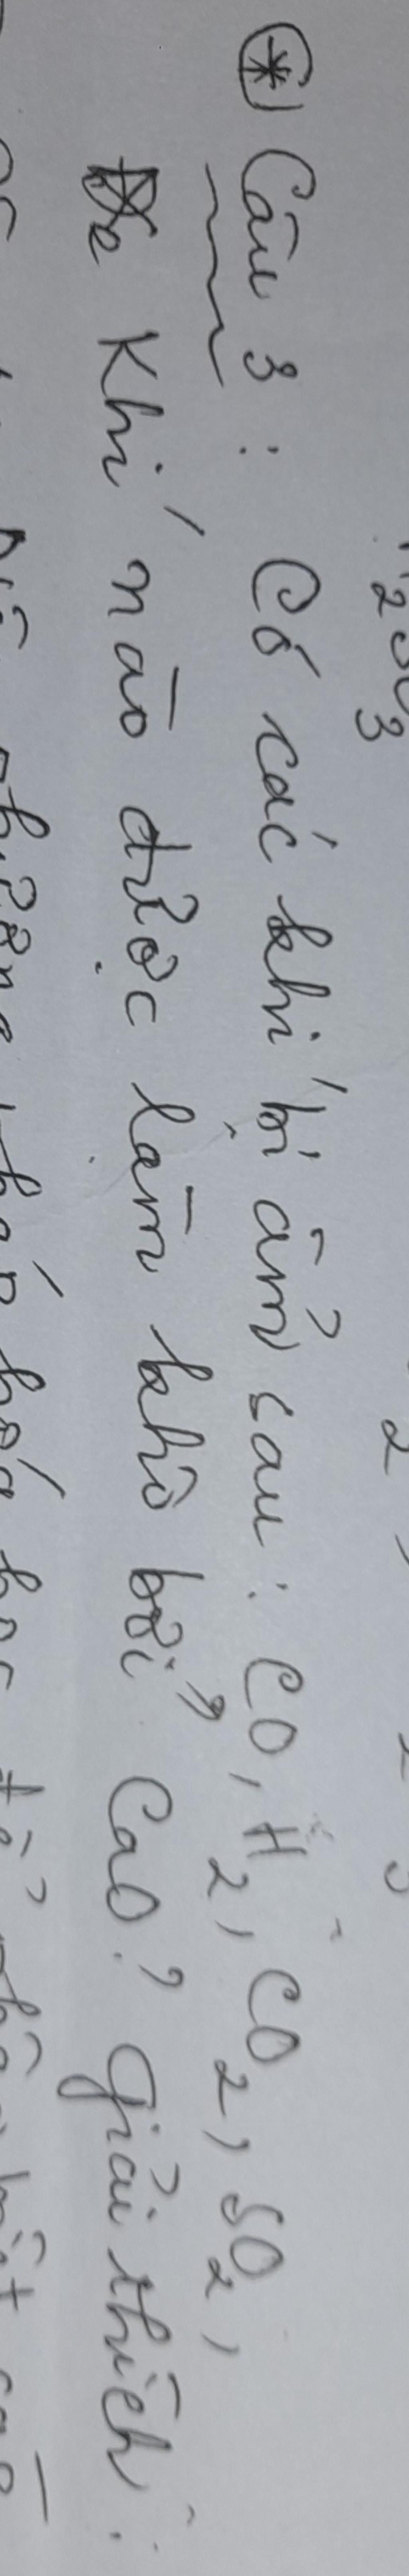 2SO3
* Câu 3: Có các khí bị ẩm sau: CO, H2, CO2, SO2,
Khí nào được làm khô bởi CaO? Giải thích.